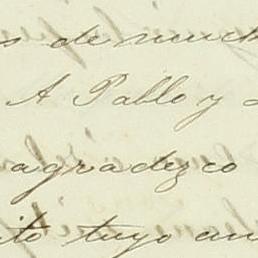 s de much
A Pablo y
agradezco
ito tuyo un